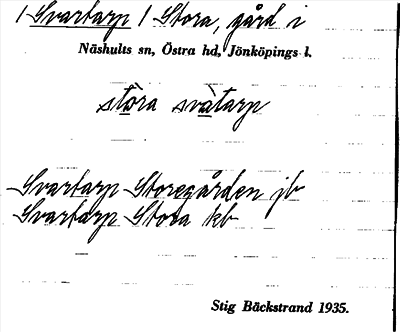 / Svartarp / Stora, gård i
Näshults sn, Östra hd, Jönköpings l.
stòra svàtarp
Svartarp Storegården jb
Svartarp Stora kb
Stig Bäckstrand 1935.